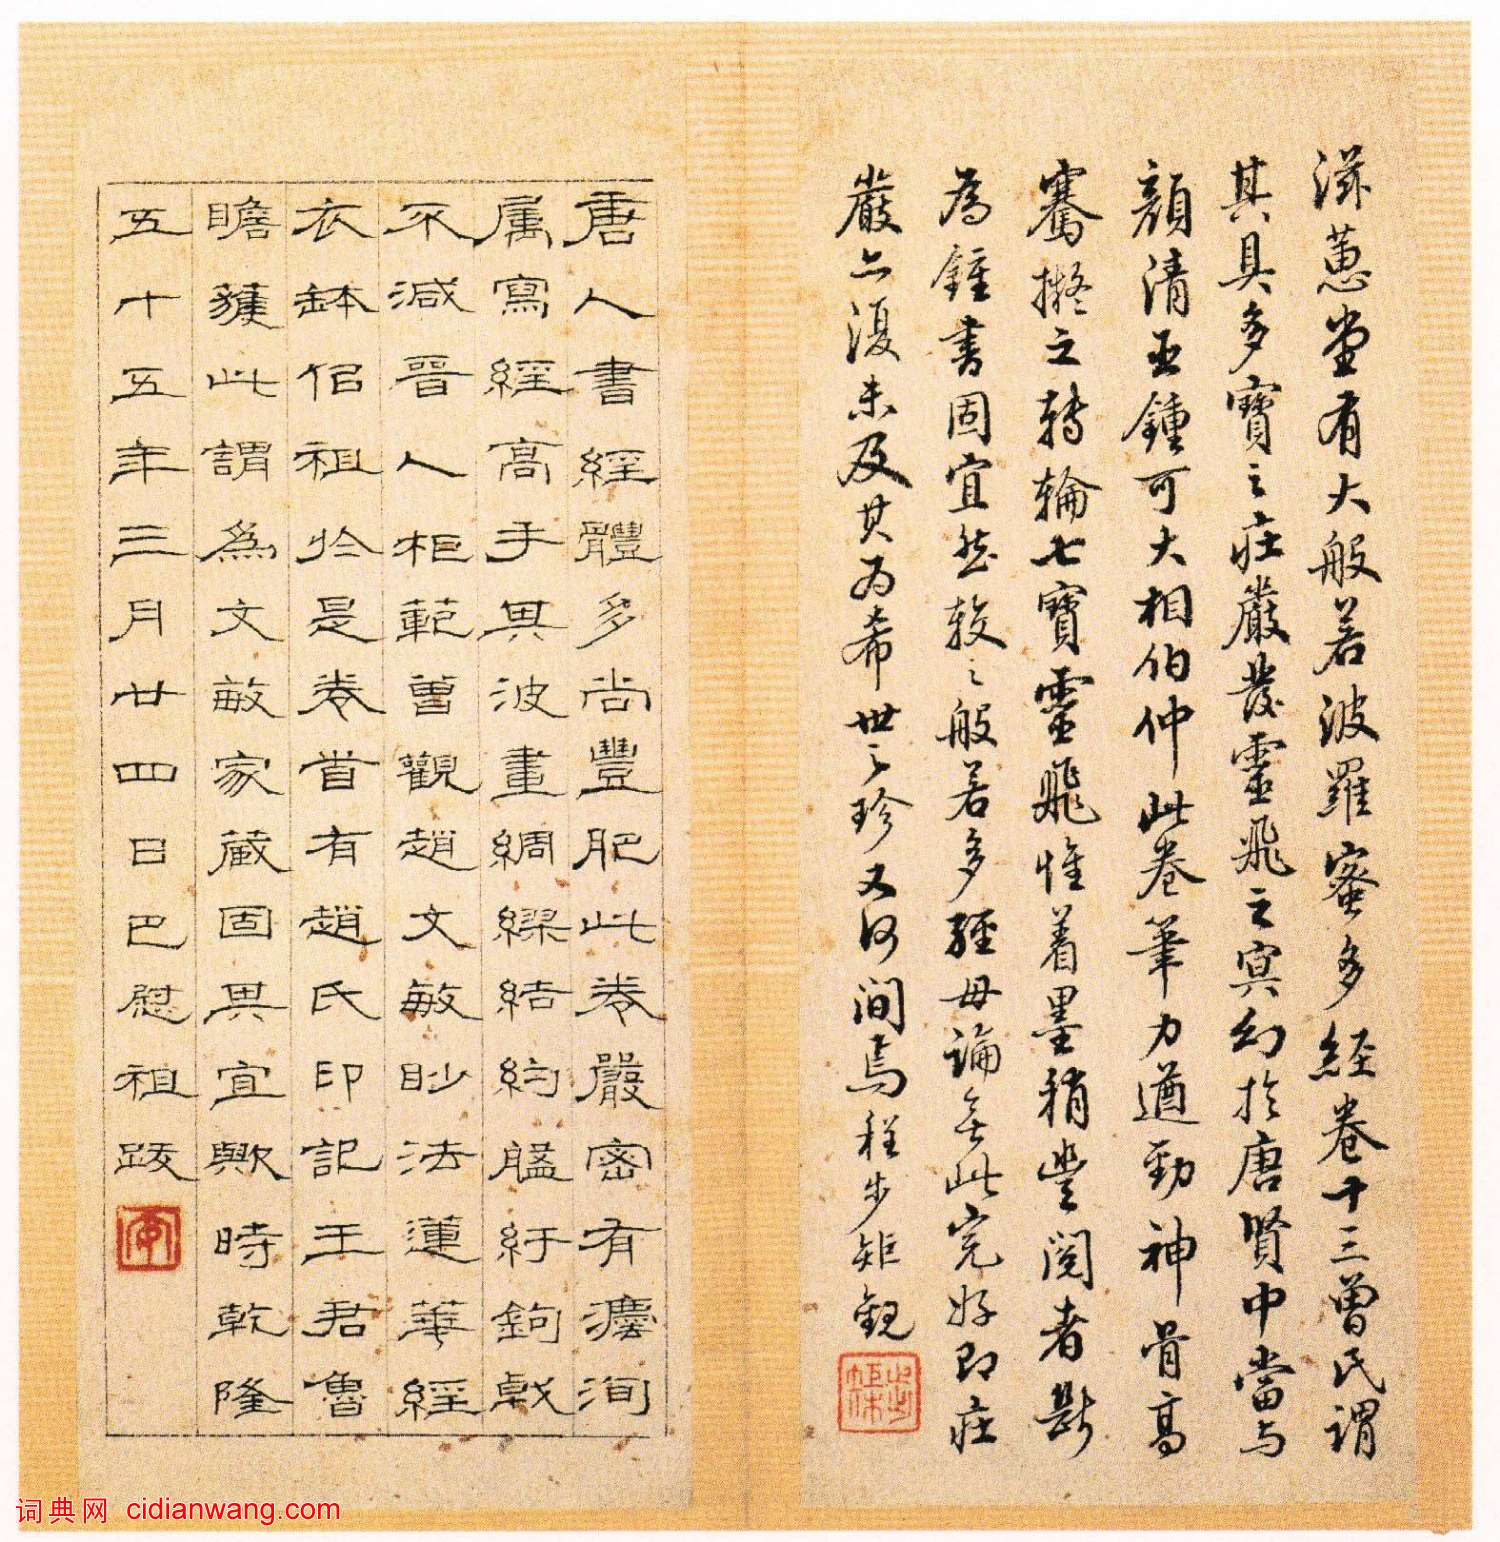 滋蕙堂有大般若波羅蜜多經卷十三曾氏謂
其具多寶之莊嚴發靈飛之冥幻於唐賢中當与
顏清臣鍾可大相伯仲此卷筆力遒勁神骨高
騫擬之轉輪七寶靈飛惟着墨稍豐閱者斷
為鍾書固宜然較之般若多經毋論無此完好即莊
嚴亦復未及其为希世之珍又何間焉程步矩觀
唐人書經體多尚豐肥此卷嚴密有瘦洵
屬寫經高手其波畫綢繆結約紆鉤戟
不減晉人柜範曾觀趙文敏眇法蓮華經
衣鉢侶祖於是卷首有趙氏印記王君魯
瞻獲此謂為文敏家藏固其宜歟時乾隆
五十五年三月廿四日巴慰祖跋
词典网 cidianwang.com